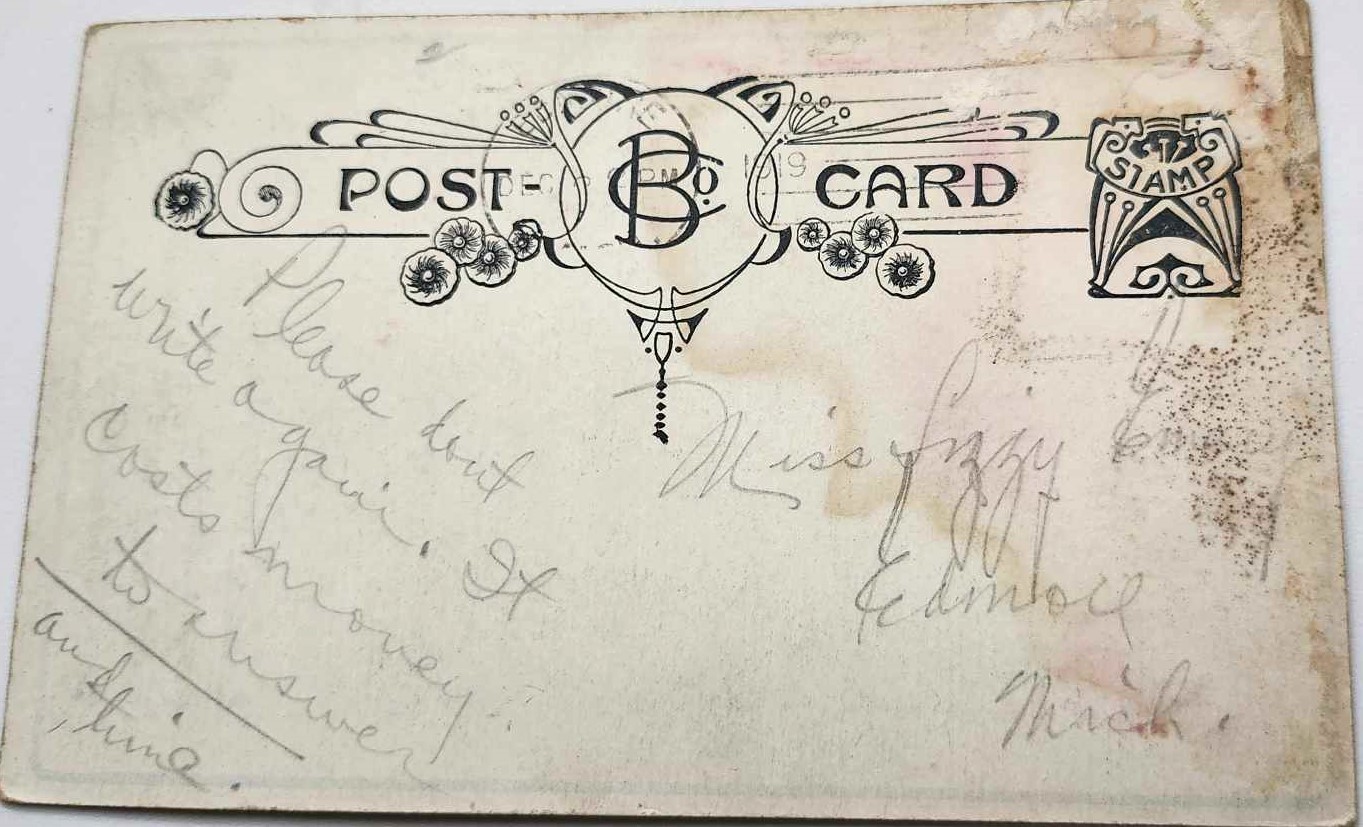 POST- BCo. CARD
STAMP
DEC PM 1919
Please dont
write again. It
costs money
to answer
and time.
Miss Lizzy
Edmore
Mich.